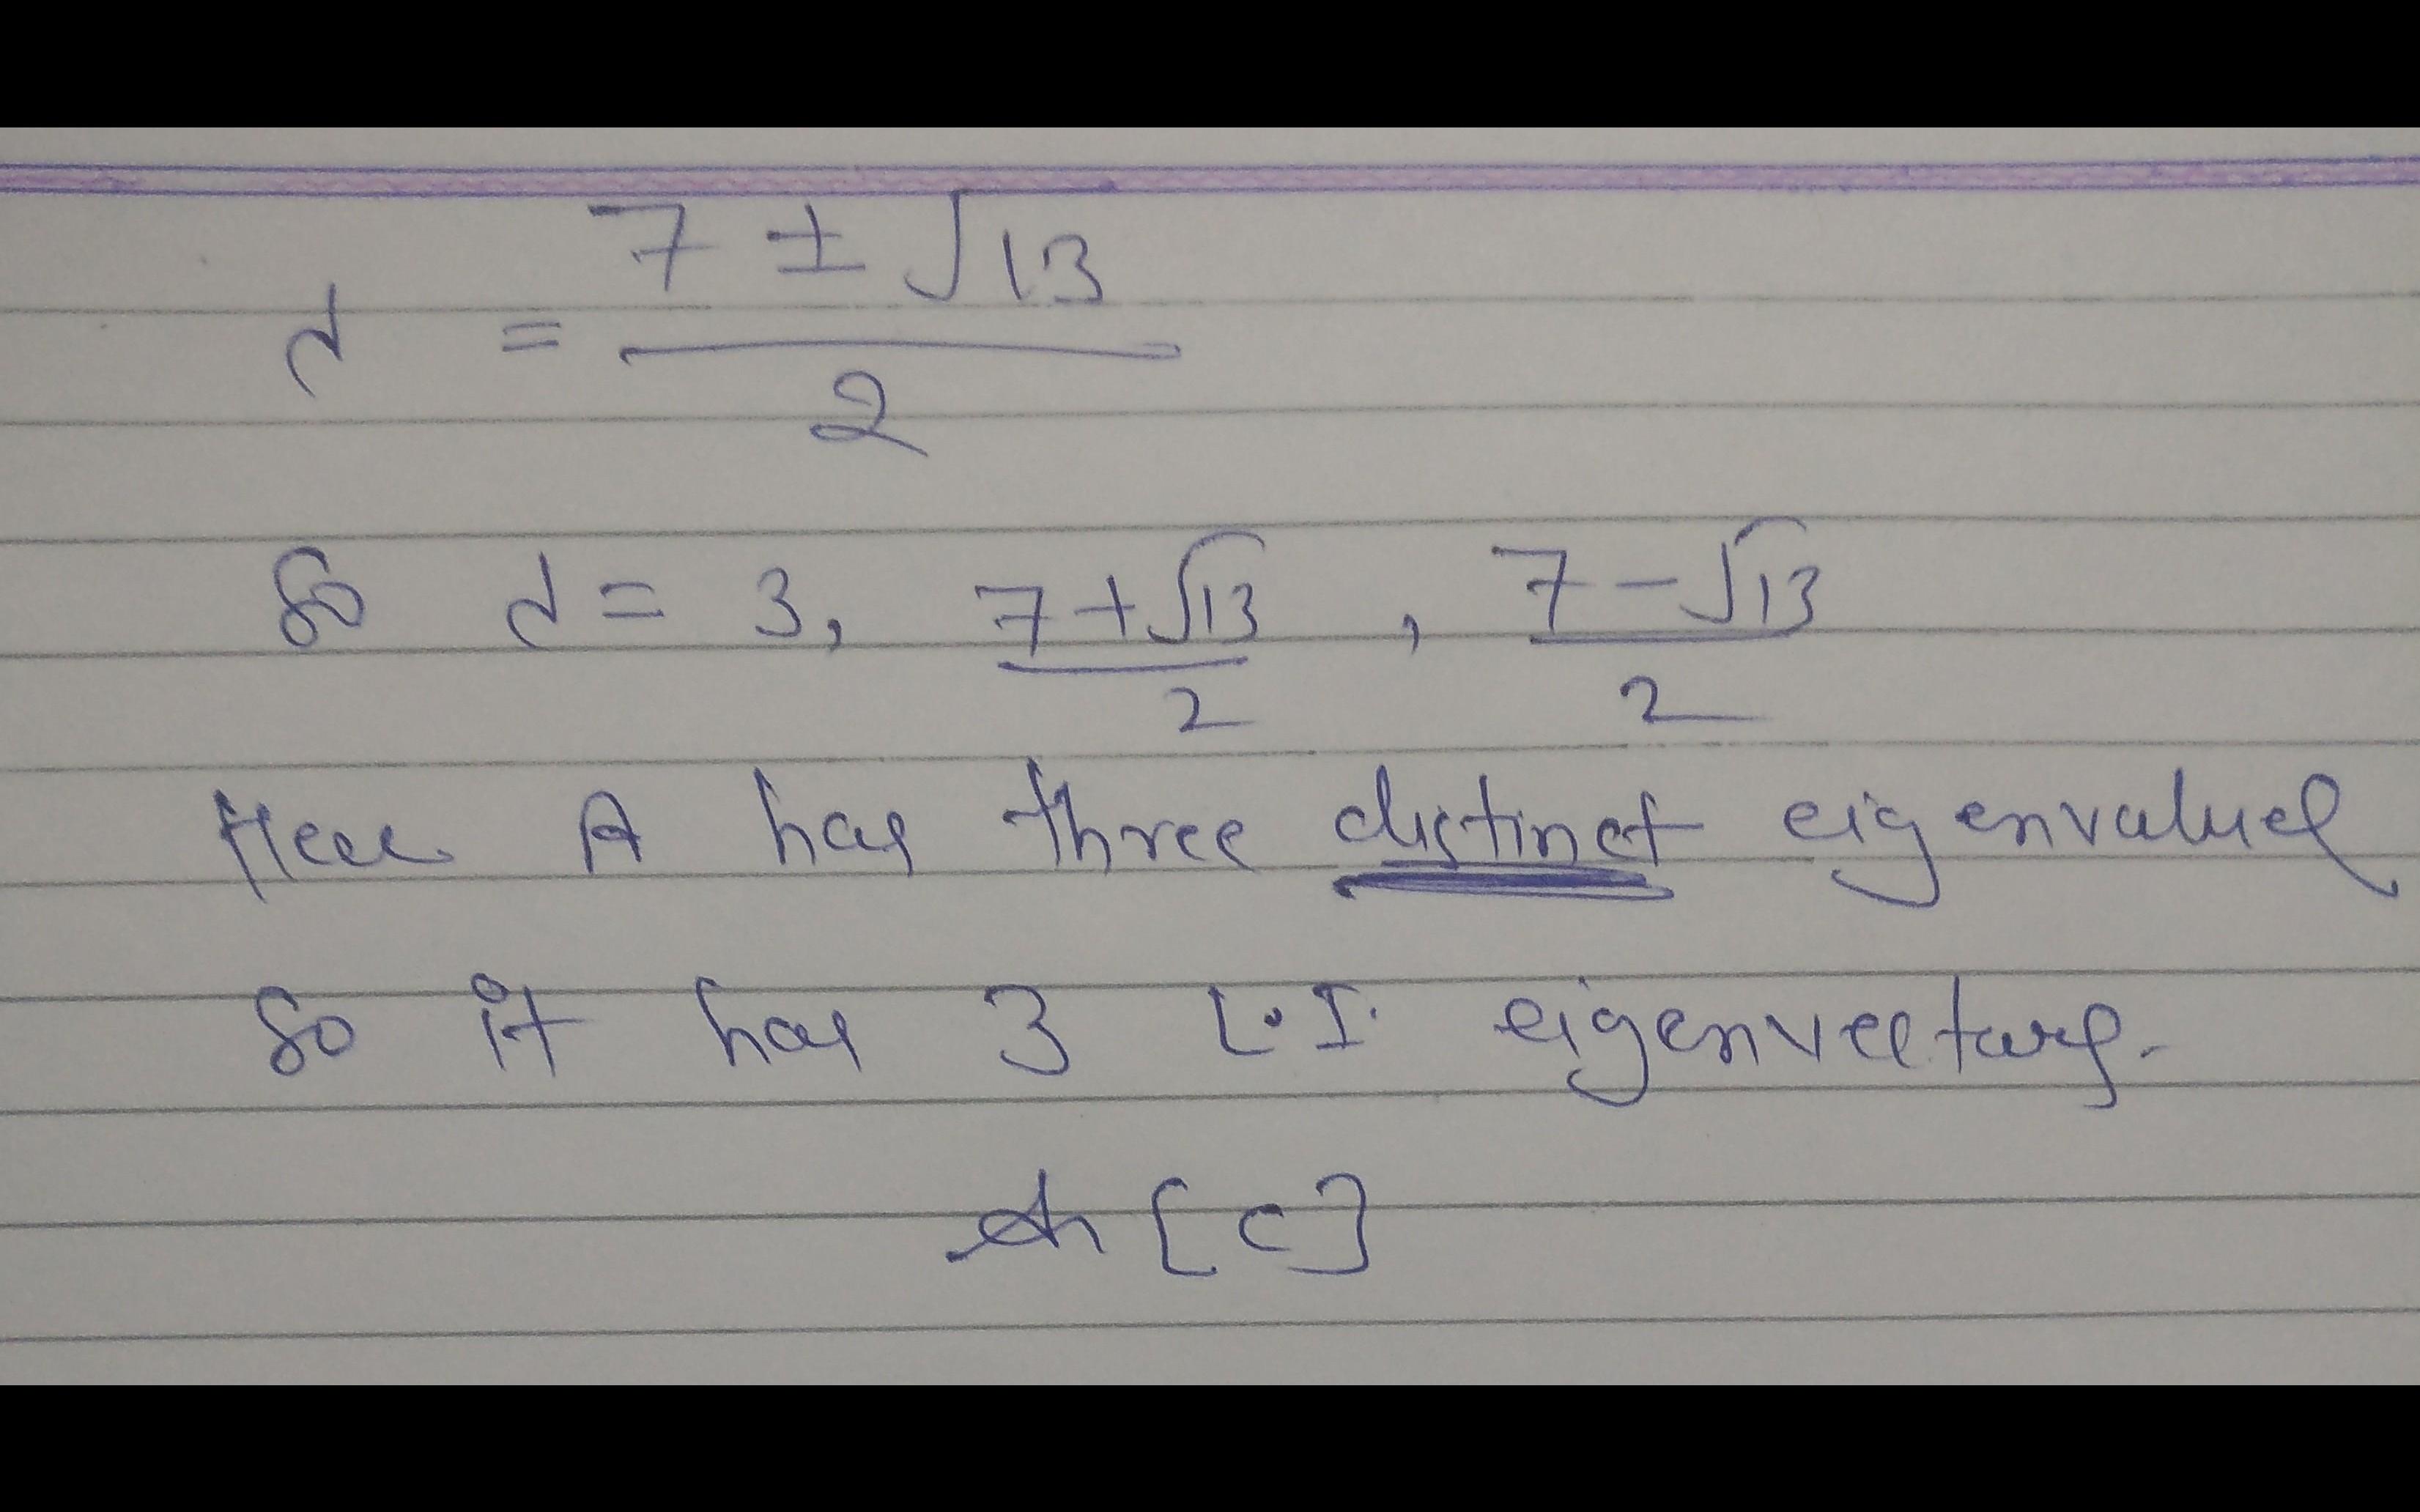 λ = 7 ± √13 / 2
So λ = 3, 7 + √13 / 2 , 7 - √13 / 2
Here A has three distinct eigenvalues
So it has 3 L.I. eigenvectors.
An [c]